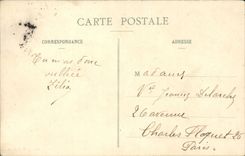 CARTE POSTALE
CORRESPONDANCE
ADRESSE
Tu m'as donc
oubliée
Célia
Madame
Vve Jeanney Delarche
2 Avenue
Charles Floquet 2
Paris.